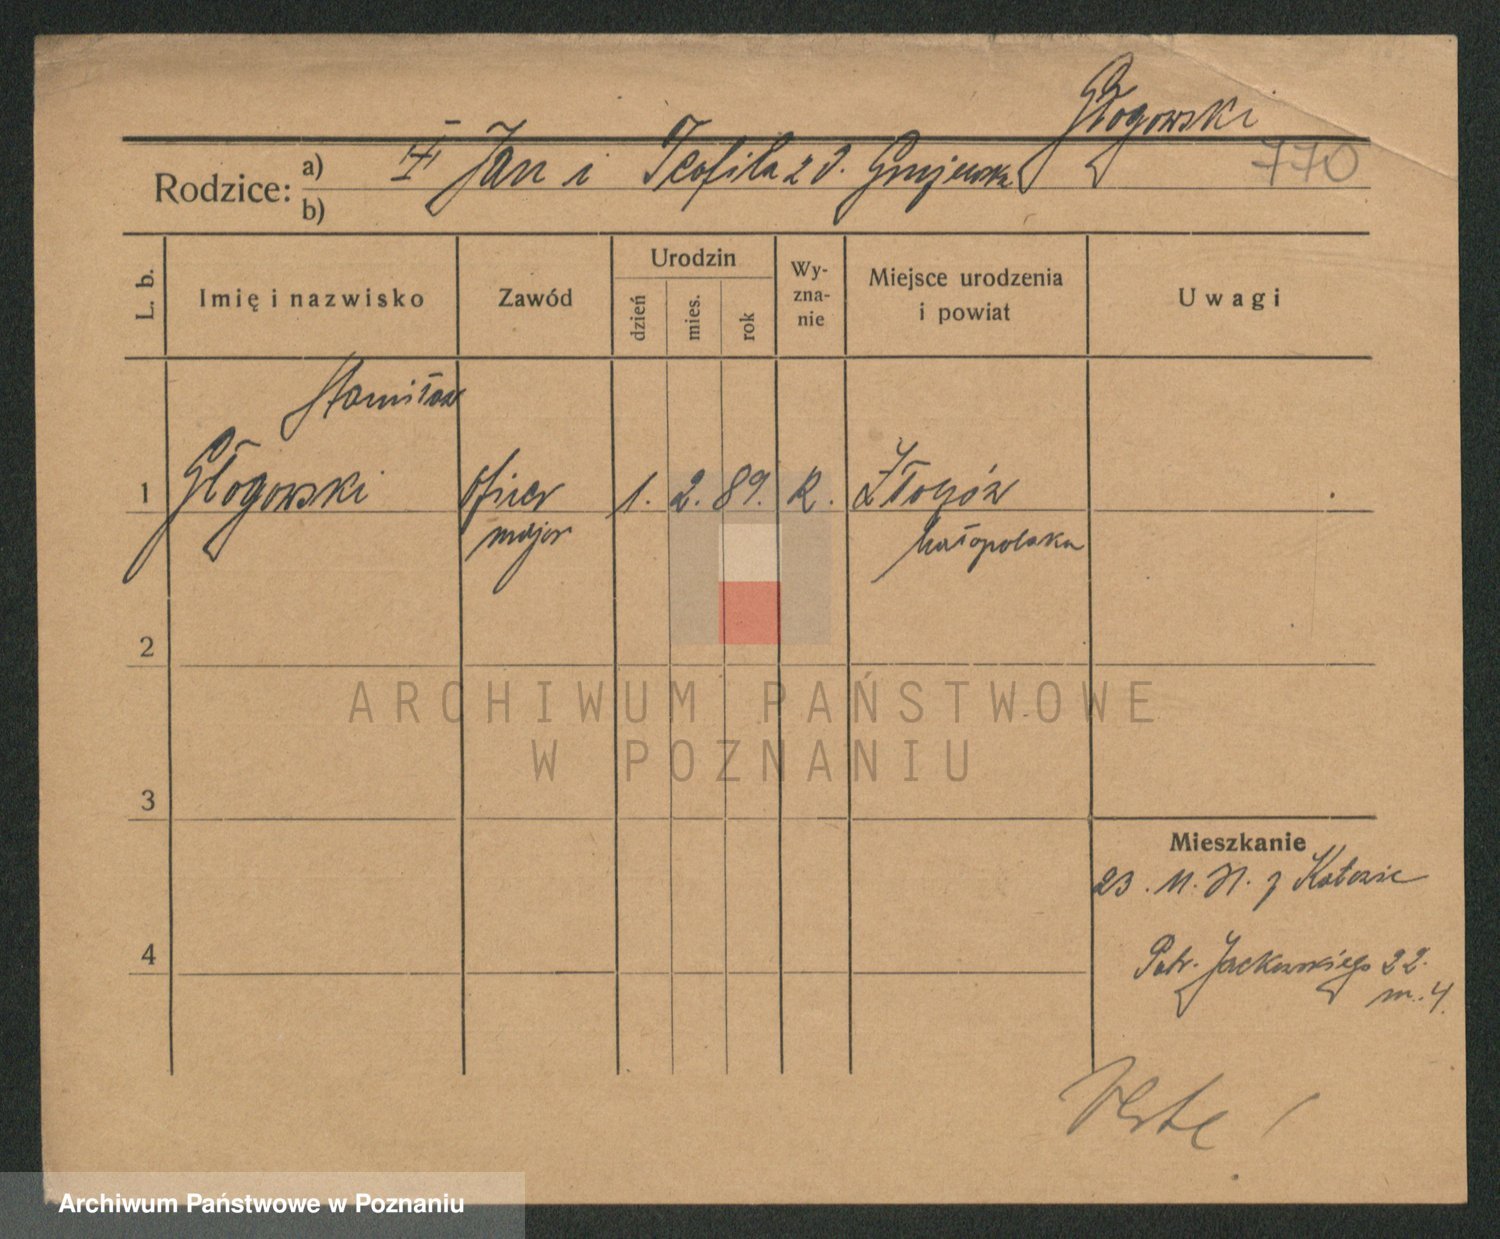 Głogowski
770
Rodzice: a) Jan i Teofila z d.
b)
L. b.
Imię i nazwisko
Zawód
Urodzin
dzień
mies.
rok
Wy-
zna-
nie
Miejsce urodzenia
i powiat
Uwagi
Stanisław
1 Głogowski oficer 1. 2. 89. R.
major Małopolska
2
ARCHIWUM PAŃSTWOWE
W POZNANIU
3
Mieszkanie
23. z Katowic
4
Jackowskiego 22.
m. 4.
Archiwum Państwowe w Poznaniu